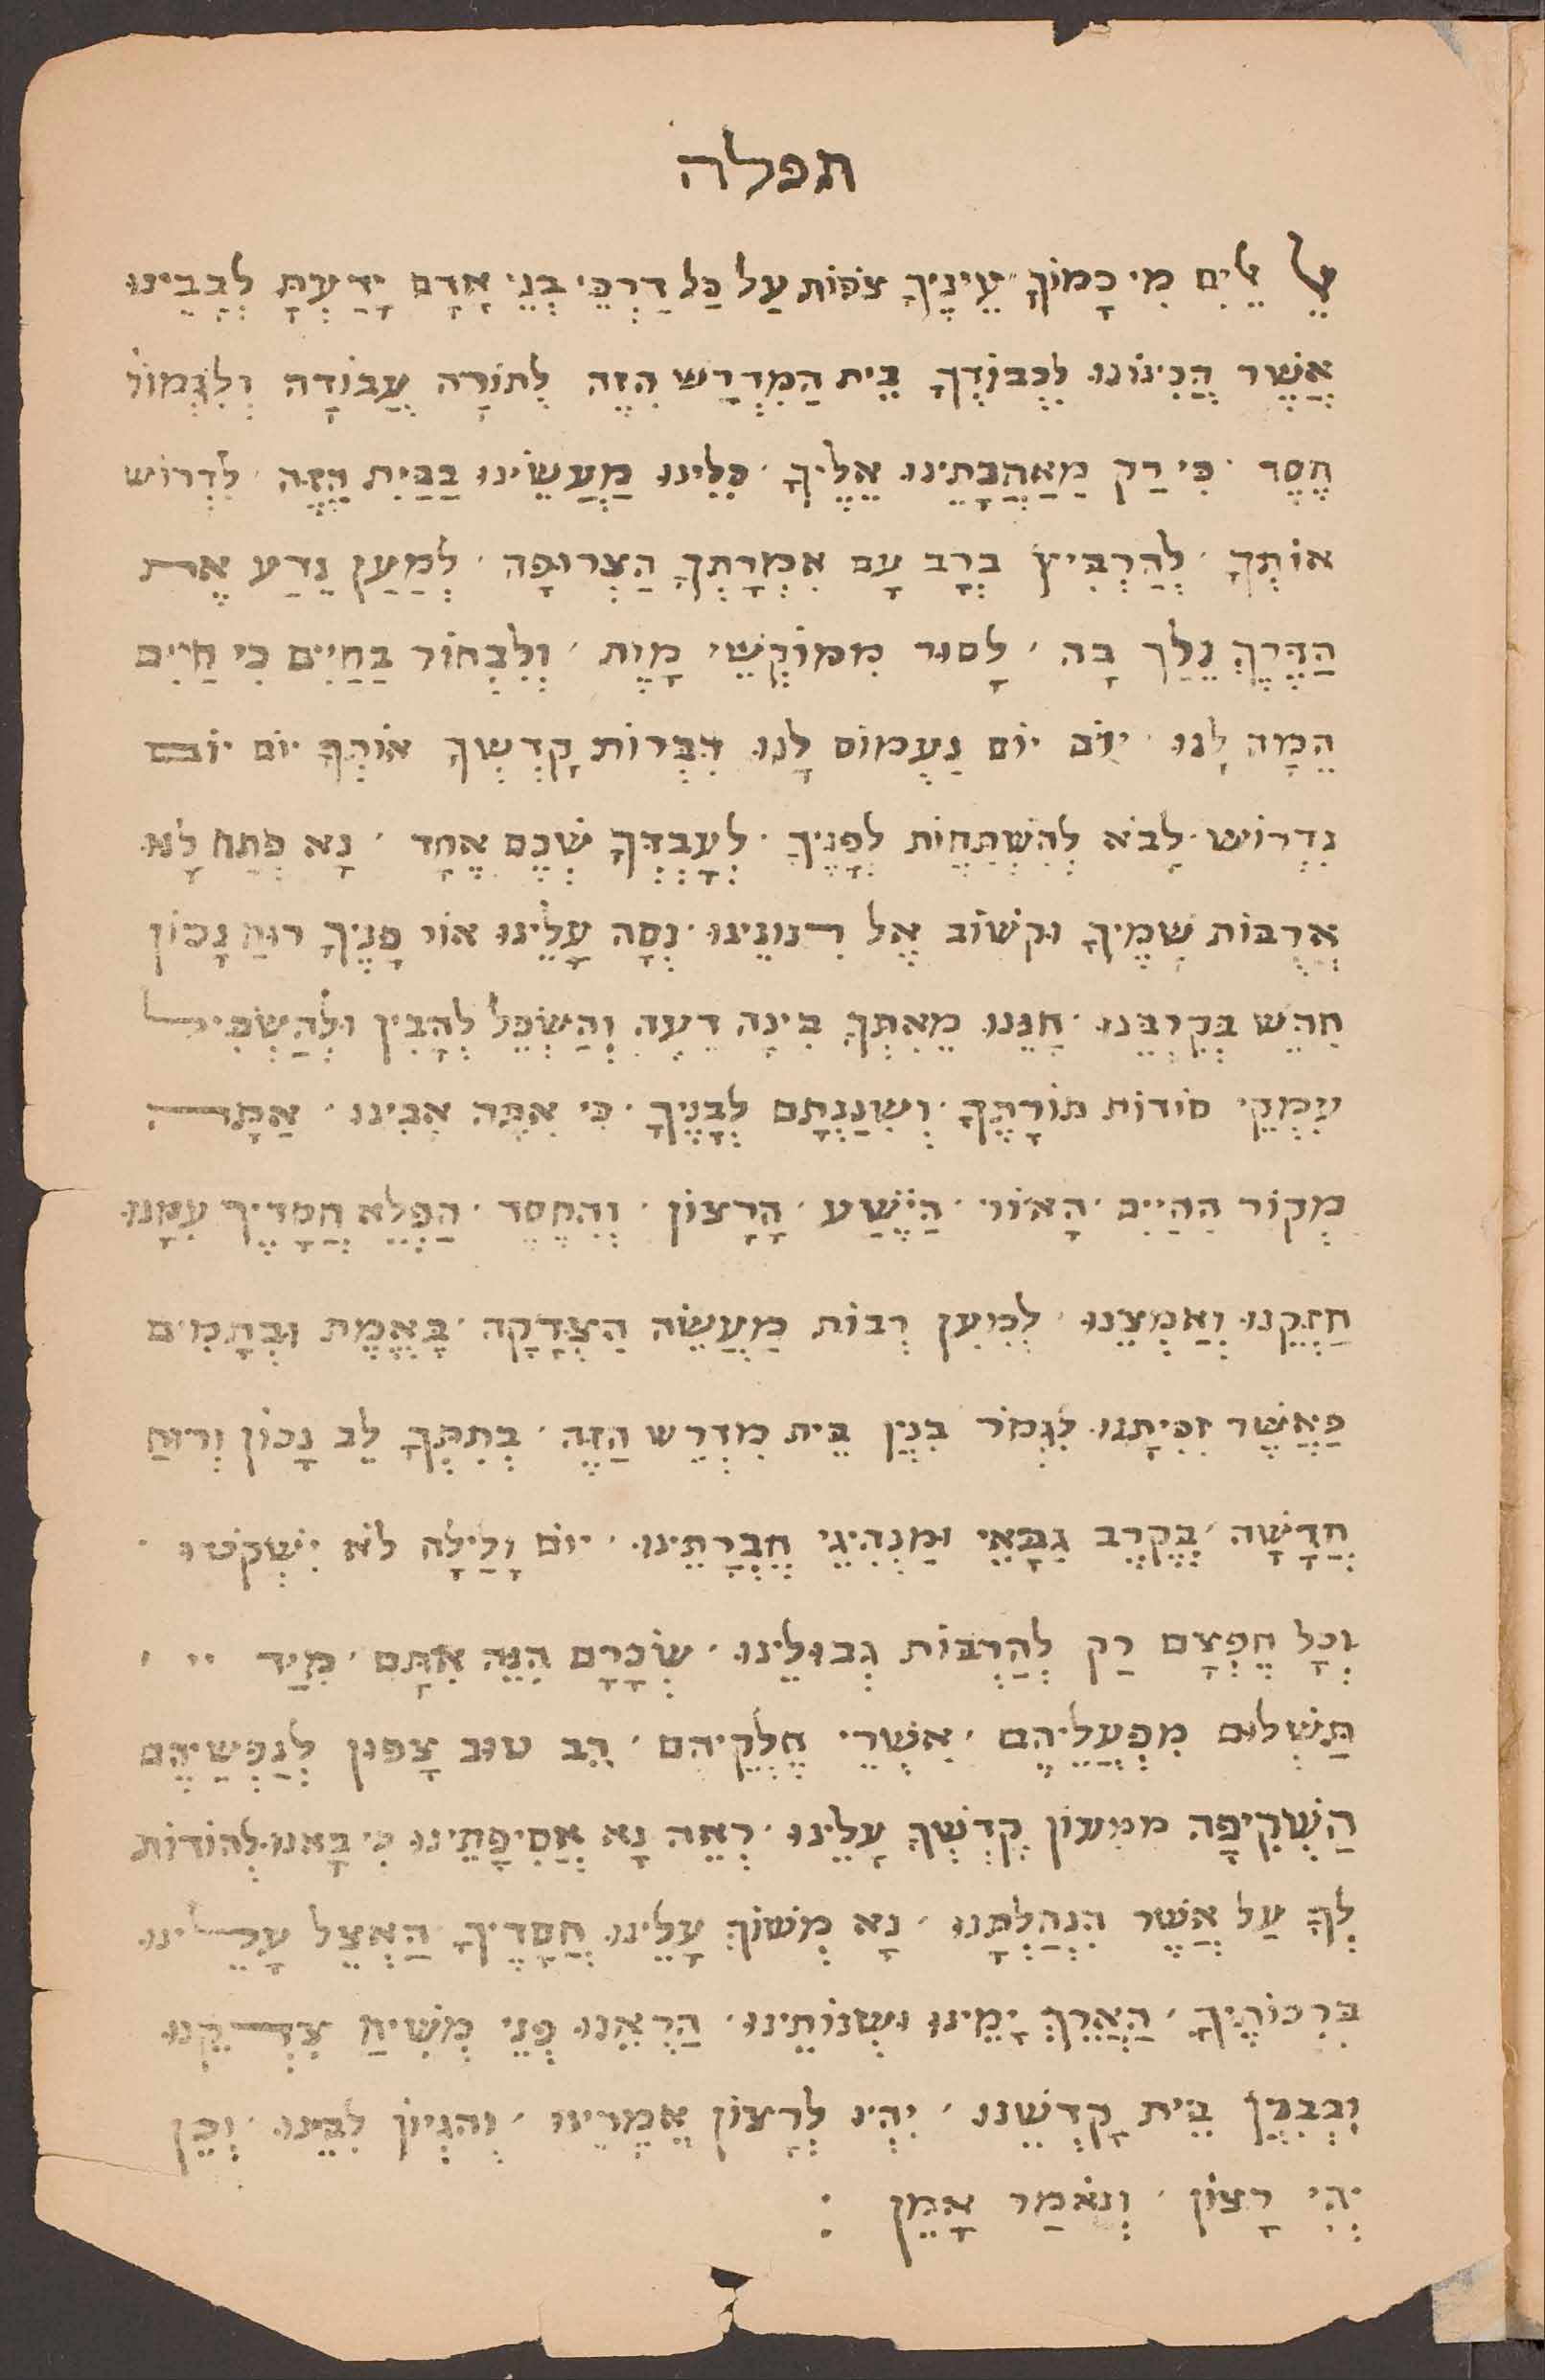 תפלה
אֵל אֵלִים מִי כָמוֹךָ עֵינֶיךָ צֹפוֹת עַל כַּל דַרְכֵי בְּנֵי אָדָם יָדַעְתָּ לְבָבֵינוּ
אֲשֶׁר הֲכִינוֹנוּ לִכְבוֹדְךָ בֵּית הַמִדְרָשׁ הַזֶה לְתוֹרָה עֲבוֹדָה וְלִגְמוֹל
חֶסֶד · כִּי רַק מֵאַהֲבָתֵינוּ אֵלֶיךָ · כִּלֵינוּ מַעֲשֵׂינוּ בַּבַּיִת הַזֶּה · לִדְרוֹשׁ
אוֹתְךָ · לְהַרְבִּיץ בְּרָב עָם אִמְרָתְךָ הַצְרוּפָה · לְמַעַן נֵדַע אֶת
הַדֶּרֶךְ נֵלֵךְ בָּהּ · לָסוּר מִמוֹקְשֵׁי מָוֶת · וְלִבְחוֹר בַּחַיִים כִּי חַיִים
הֵמָה לָנוּ · יוֹם יוֹם נַעְמוֹס לָנוּ דִּבְרוֹת קָדְשְׁךָ אוֹתְךָ יוֹם יוֹם
נִדְרוֹשׁ · לָבֹא לְהִשְׁתַּחֲוֹת לְפָנֶיךָ · לְעָבְדְּךָ שְׁכֶם אֶחָד · נָא פְּתַח לָנוּ
אֲרֻבּוֹת שָׁמֶיךָ וּקְשׁוֹב אֶל רִנוּנֵינוּ · נְסָה עָלֵינוּ אוֹר פָּנֶיךָ רוּחַ נָכוֹן
חַדֵשׁ בְּקִרְבֵּנוּ · חָנֵּנוּ מֵאִתְּךָ בִּינָה דֵעָה וְהַשְׂכֵּל לְהָבִין וּלְהַשְׂכִּיל
עִמְקֵי סוֹדוֹת תּוֹרָתֶךָ · וְשִׁנַנְתָּם לְבָנֶיךָ · כִּי אַתָּה אָבִינוּ · אַתָּה
מְקוֹר הַחַיִים · הָאוֹר · הַיֶּשַׁע · הָרָצוֹן · וְהַחֶסֶד · הַפְלֵא חֲסָדֶיךָ עִמָנוּ
חַזְּקֵנוּ וְאַמְּצֵנוּ · לְמַעַן רְבוֹת מַעֲשֵׂה הַצְּדָקָה · בֶּאֱמֶת וּבְתָמִים
כַּאֲשֶׁר זִכִּיתָנוּ לִגְמֹר בִּנְיַן בֵּית מִדְרַשׁ הַזֶּה · בְּתִתְּךָ לֵב נָכוֹן וְרוּחַ
חֲדָשָׁה · בְּקֶרֶב גַּבָּאֵי וּמַנְהִיגֵי חֶבְרָתֵינוּ · יוֹם וָלַיְלָה לֹא יִשְׁקֹטוּ ·
וְכָל חֶפְצָם רַק לְהַרְבּוֹת גְּבוּלֵינוּ · שְׂכָרָם הִנֵּה אִתָּם · מִיַד יי ·
תַּשְׁלוּם מִפְעֲלֵיהֶם · אַשְׁרֵי חֶלְקֵיהֶם · רַב טוּב צָפוּן לְנַפְשֵׁיהֶם
הַשְׁקִיפָה מִמְעוֹן קָדְשְׁךָ עָלֵינוּ · רְאֵה נָא אֲסִיפָתֵינוּ כִּי בָאנוּ לְהוֹדוֹת
לְךָ עַל אֲשֶׁר הִנְהַלְתָּנוּ · נָא מְשׁוֹךְ עָלֵינוּ חֲסָדֶיךָ הַאְצֵל עָלֵינוּ
בִּרְכוֹתֶיךָ · הַאֲרֵךְ יָמֵינוּ וּשְׁנוֹתֵינוּ · הַרְאֵנוּ פְּנֵי מְשִׁיחַ צִדְקֵנוּ
וּבְבִנְיַן בֵּית קָדְשֵׁנוּ · יִהְיוּ לְרָצוֹן אֲמָרֵינוּ · וְהִגְיוֹן לִבֵּינוּ · וְכֵן
יְהִי רָצוֹן · וְנֹאמַר אָמֵן :